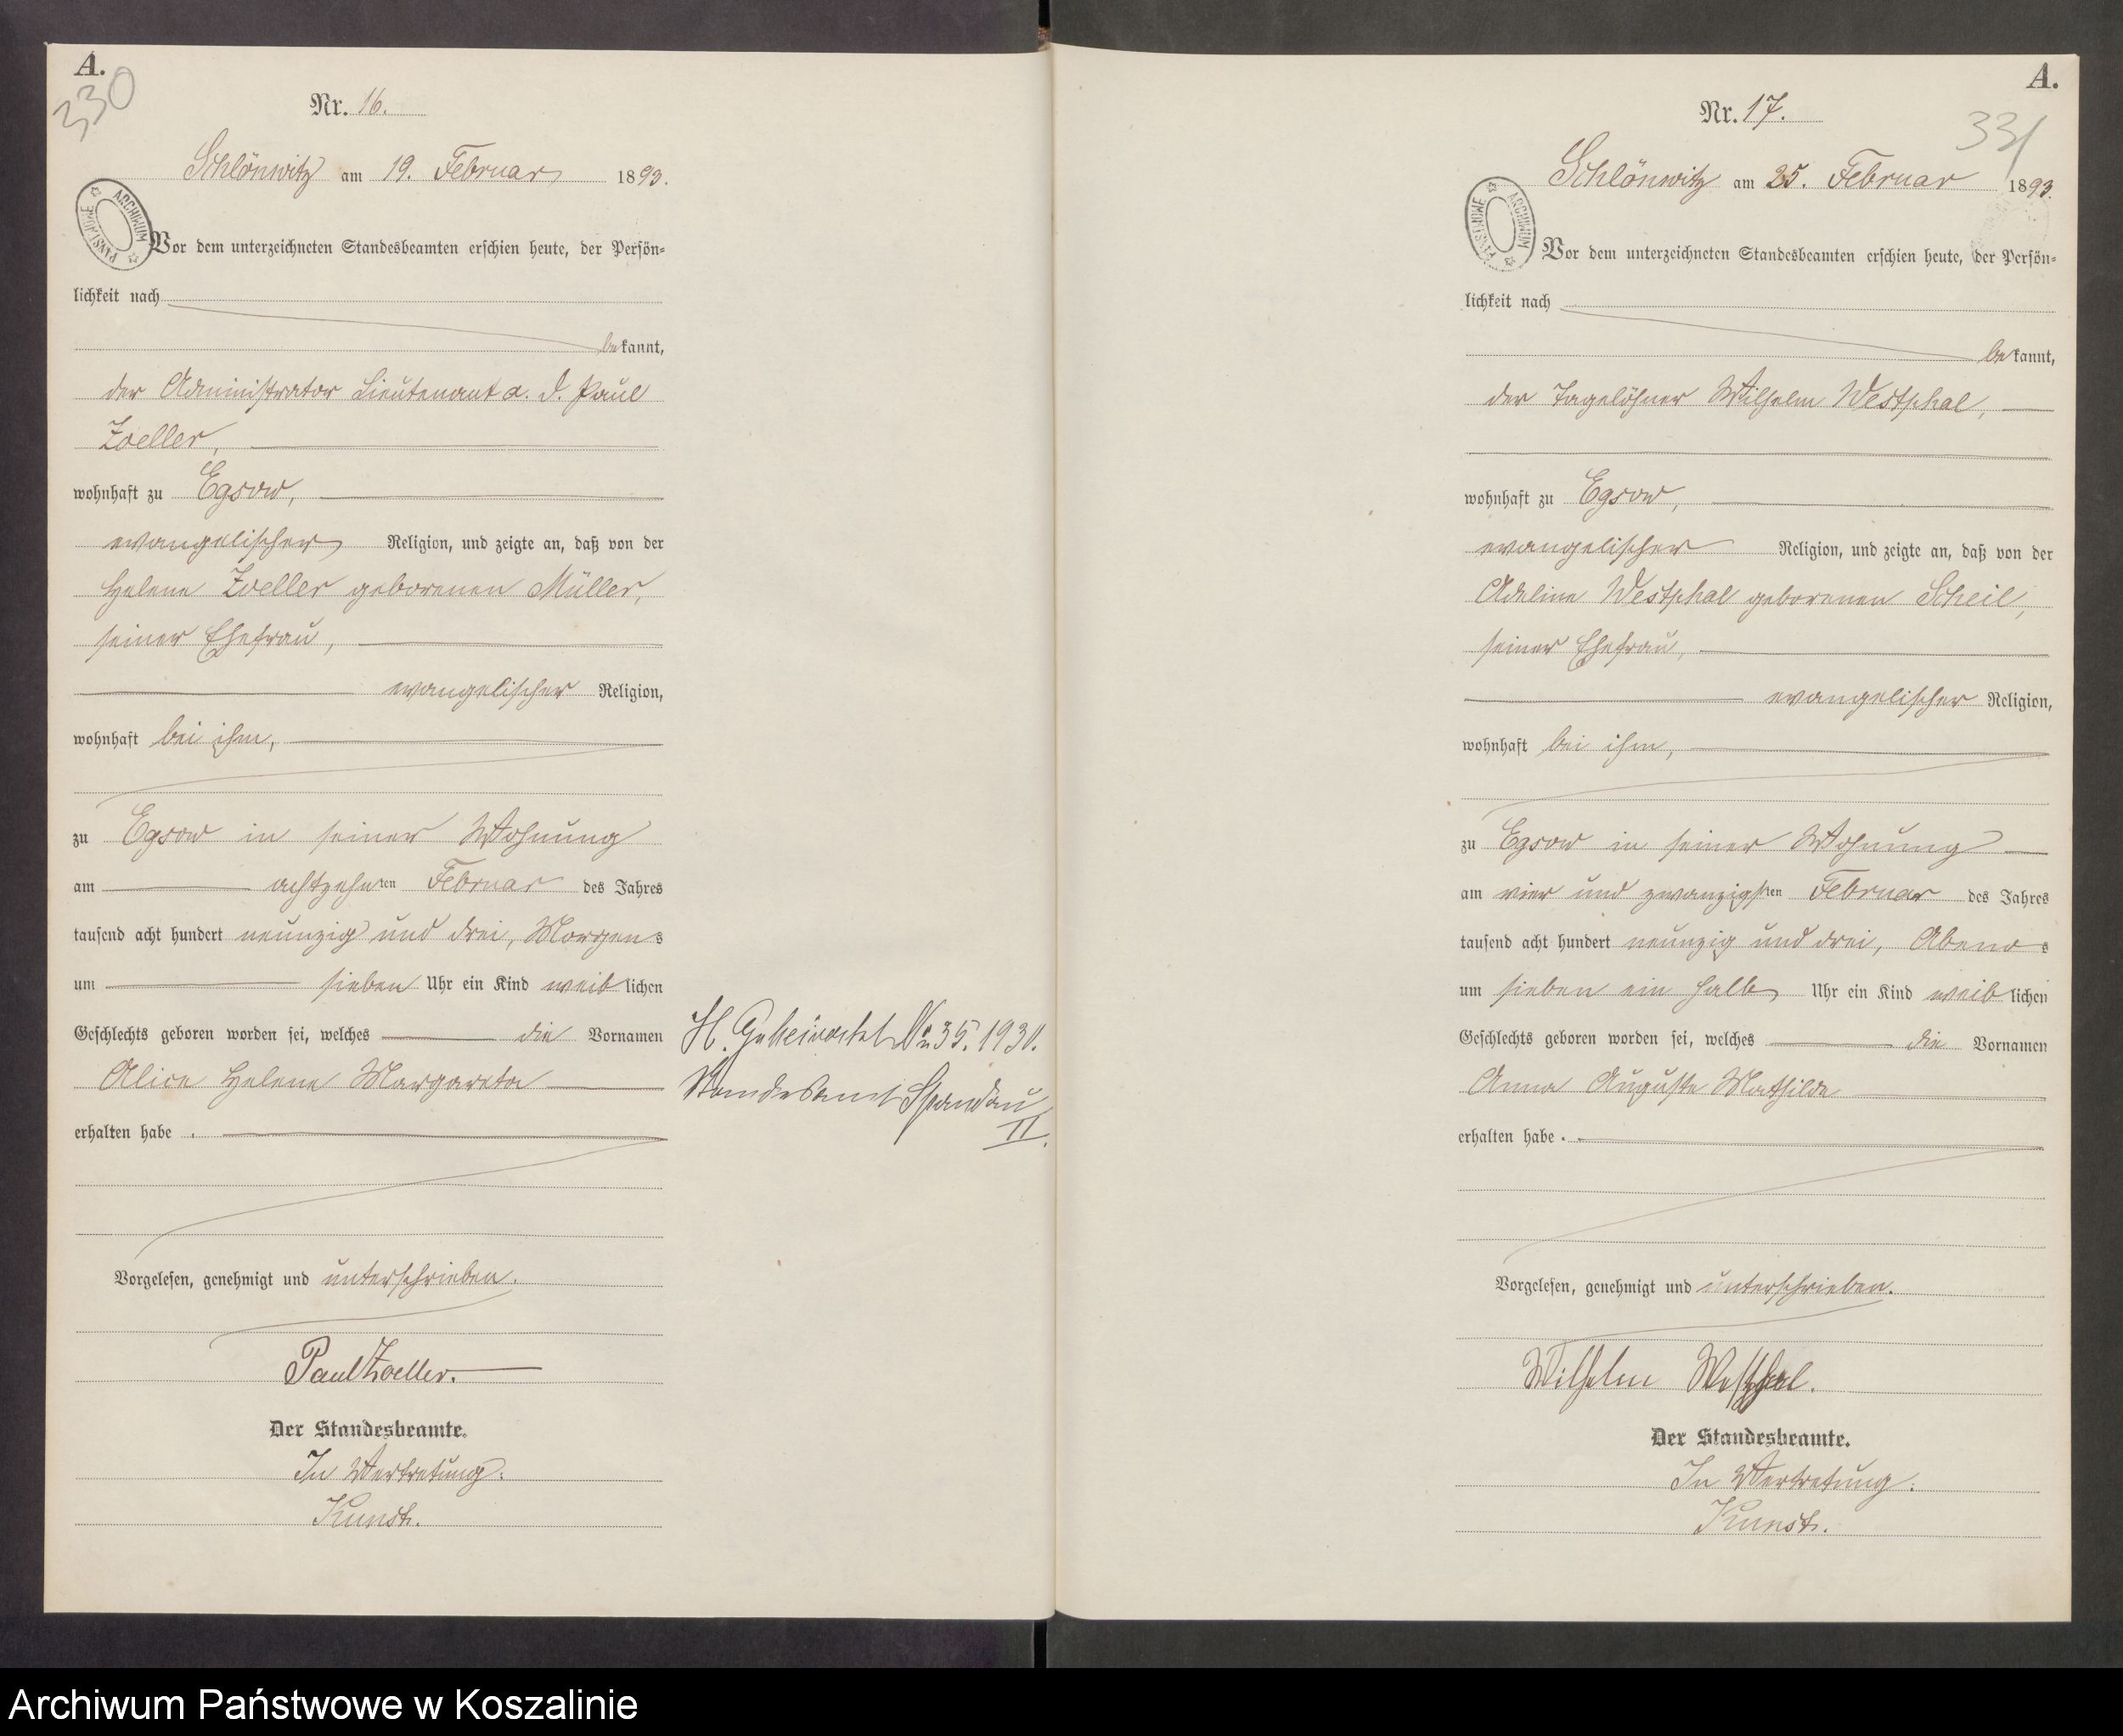 A.
330
Nr. 16.
Schlönwitz am 19. Februar 1893.
ARCHIWUM PAŃSTWOWE
Vor dem unterzeichneten Standesbeamten erschien heute, der Persön-
lichkeit nach
bekannt,
der Administrator Lieutenant a. D. Paul
Zoeller,
wohnhaft zu Egsow,
evangelischer Religion, und zeigte an, daß von der
Helene Zoeller geborenen Müller,
seiner Ehefrau,
evangelischer Religion,
wohnhaft bei ihm,
zu Egsow in seiner Wohnung
am achtzehnten Februar des Jahres
tausend acht hundert neunzig und drei, Morgens
um sieben Uhr ein Kind weiblichen
Geschlechts geboren worden sei, welches die Vornamen
Alice Helene Margareta
erhalten habe.
Vorgelesen, genehmigt und unterschrieben.
Paul Zoeller.
Der Standesbeamte.
In Vertretung.
Kunst.
H. Geheiratet Nr. 35. 1930.
Standesamt Spandau
II.
A.
331
Nr. 17.
Schlönwitz am 25. Februar 1893.
ARCHIWUM PAŃSTWOWE
Vor dem unterzeichneten Standesbeamten erschien heute, der Persön-
lichkeit nach
bekannt,
der Tagelöhner Wilhelm Westphal,
wohnhaft zu Egsow,
evangelischer Religion, und zeigte an, daß von der
Adeline Westphal geborenen Scheil,
seiner Ehefrau,
evangelischer Religion,
wohnhaft bei ihm,
zu Egsow in seiner Wohnung
am vier und zwanzigsten Februar des Jahres
tausend acht hundert neunzig und drei, Abends
um sieben ein halb Uhr ein Kind weiblichen
Geschlechts geboren worden sei, welches die Vornamen
Anna Auguste Mathilde
erhalten habe.
Vorgelesen, genehmigt und unterschrieben.
Wilhelm Westphal.
Der Standesbeamte.
In Vertretung.
Kunst.
Archiwum Państwowe w Koszalinie